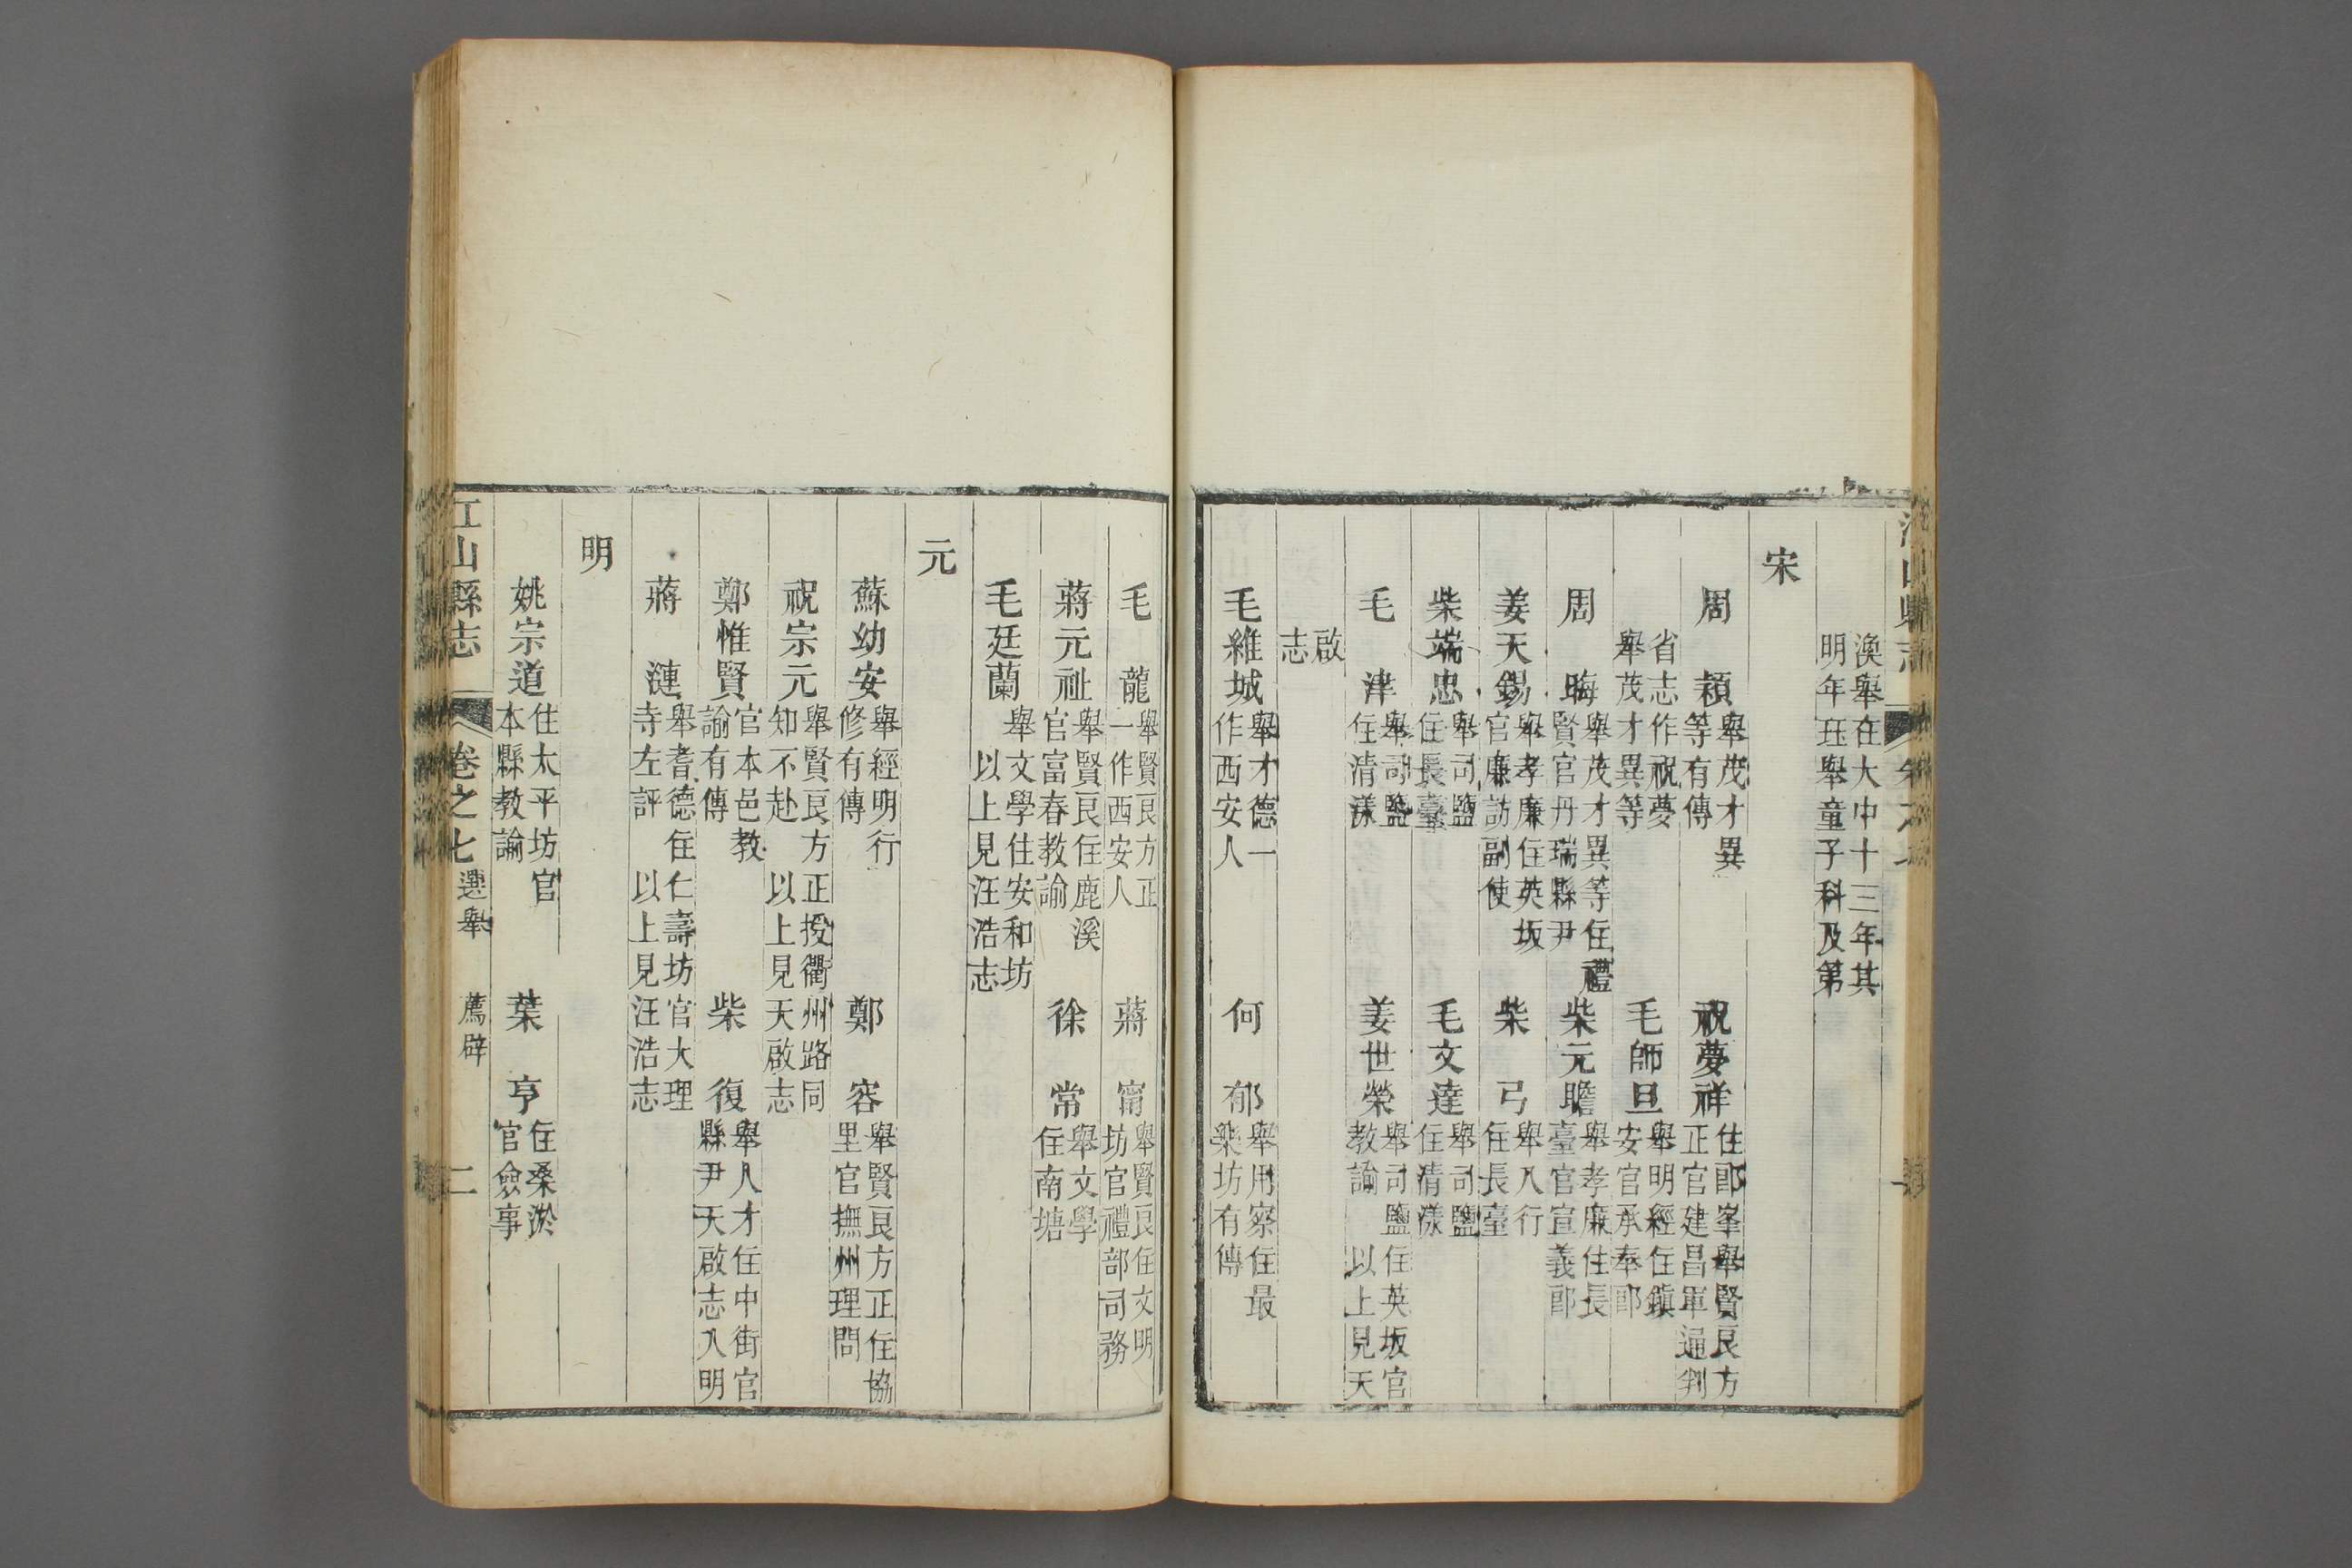 渙舉在大中十三年其
明年珏舉童子科及第
宋
周 穎 舉茂才異
等有傳
祝夢祥 住郎峯舉賢良方
正官建昌軍通判
省志作祝夢
舉茂才異等
毛師旦 舉明經住鎮
安官承奉郎
周 晦 舉茂才異等住禮
賢官丹瑞縣尹
柴元瞻 舉孝廉住長
臺官宣義郎
姜天錫 舉孝廉住英坂
官廉訪副使
柴 弓 舉八行
住長臺
柴端忠 舉司鹽
住長臺
毛文達 舉司鹽
住清漾
毛 津 舉司鹽
住清漾
姜世榮 舉司鹽住英坂官
教諭 以上見天
啟
志
毛維城 舉才德一
作西安人
何 郁 舉用察住最
樂坊有傳
毛 龍 舉賢良方正
一作西安人
蔣 甯 舉賢良住文明
坊官禮部司務
蔣元祉 舉賢良住鹿溪
官富春教諭
徐 常 舉文學
住南塘
毛廷蘭 舉文學住安和坊
以上見汪浩志
元
蘇幼安 舉經明行
修有傳
鄭 容 舉賢良方正住協
里官撫州理問
祝宗元 舉賢良方正授衢州路同
知不赴 以上見天啟志
鄭惟賢 官本邑教
諭有傳
柴 復 舉人才住中街官
縣尹天啟志入明
蔣 漣 舉耆德住仁壽坊官大理
寺左評 以上見汪浩志
明
姚宗道 住太平坊官
本縣教諭
葉 亨 住桑淤
官僉事
江山縣志 卷之七 選舉 薦辟 二